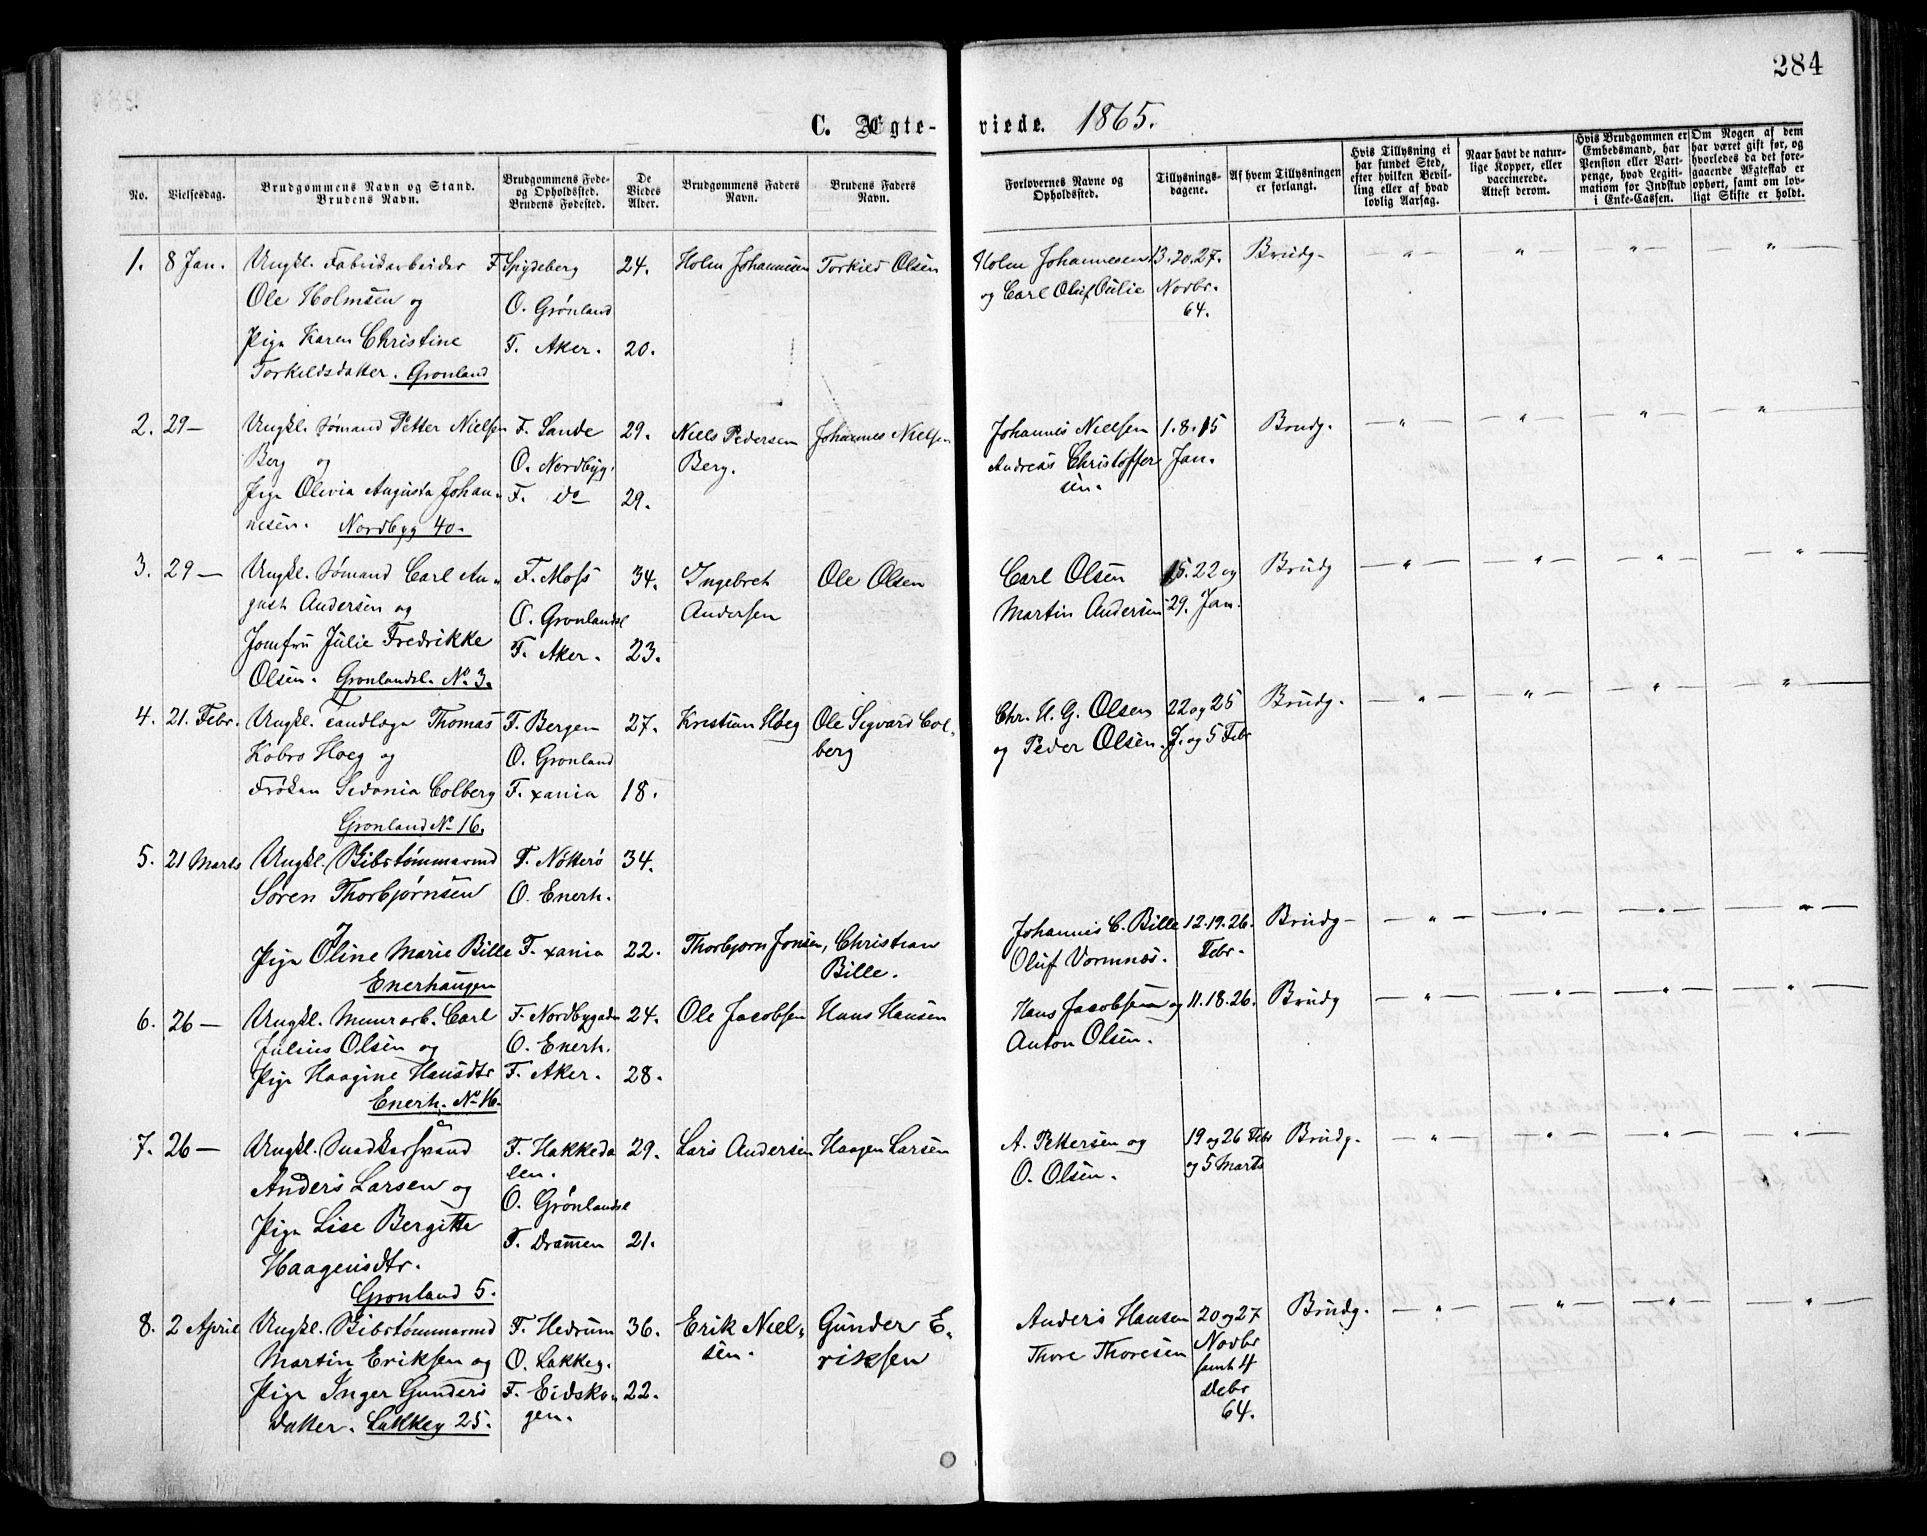 284
C. Ægte-
viede. 1865.
No.
Vielsesdag.
Brudgommens Navn og Stand.
Brudens Navn.
Brudgommens Føde-
og Opholdssted.
Brudens Fødested.
De
Viedes
Alder.
Brudgommens Faders
Navn.
Brudens Faders
Navn.
Forlovernes Navne og
Opholdssted.
Tillysnings-
dagene.
Af hvem Tillysningen
er forlangt.
Hvis Tillysning ei
har fundet Sted,
efter hvilken Bevil-
ling eller af hvad
lovlig Aarsag.
Naar havt de natur-
lige Kopper, eller
vaccinerede.
Attest derom.
Hvis Brudgommen er
Embedsmand, har
Pension eller Vart-
penge, hvad Legiti-
mation for Indskud
i Enke-Cassen.
Om Nogen af dem
har været gift før, og
hvorledes da det fore-
gaaende Ægteskab er
ophørt, samt om lov-
ligt Skifte er holdt.
1. 8 Jan. Ungkl. Fabrikarbeider F. Spydeberg 24. Holm Johannesen Torkild Olsen Holm Johannesen 13. 20. 27. Brudg. — " — " — " — "
Ole Holmsen og O. Grønland og Carl Oluf Julie Novbr.
64.
Pige Karen Christine F. Aker. 20.
Torkildsdatter. Gronland
2. 29 — Ungkl. Sømand Petter Nielsen F. Sande 29. Niels Pedersen Johannes Nielsen Johannes Nielsen 1. 8. 15 Brudg. — " — " — " — "
Berg og O. Nordbyg. Berg. Andreas Christoffer Jan.
sen.
Pige Olivia Augusta Johan- F. do 29.
nesen. Nordbyg 40.
3. 29 — Ungkl. Sømand Carl Au- F. Moss 34. Ingebret Ole Olsen Carl Olsen 15. 22 og Brudg — " — " — " — "
gust Andersen og O. Gronlandsl Andersen Martin Andersen 29. Jan.
Jomfru Julie Fredrikke F. Aker. 23.
Olsen. Gronlandsl. No 3.
4. 21. Febr. Ungkl. Tandlæge Thomas F. Bergen 27. Kristian Høeg Ole Sigvard Col- Chr. H. G. Olsen 22 og 25 Brudg. — " — " — " — "
Kobro Hoeg og O. Gronland berg og Peder Olsen. J. og 5 Febr
Frøken Sidonia Colberg F. xania 18.
Gronland No 16.
5. 21 Marts Ungkl. Skibstømmermd F. Nøtterø 34.
Søren Thorbjørnsen O. Enerh.
Johannes C. Bille 12. 19. 26. Brudg — " — " — " — "
Pige Oline Marie Bille F. xania 22. Thorbjorn Jonsen, Christian Oluf Vormnæs. Febr.
Enerhaugen Bille.
6. 26 — Ungkl. Murarb. Carl F. Nordbygaden 24. Ole Jacobsen Hans Hansen Hans Jacobsen og 11. 18. 26. Brudg — " — " — " — "
Julius Olsen og O. Enerh. Anton Olsen.
Pige Haagine Hansdtr F. Aker. 28.
Enerh. No 16.
7. 26 — Ungkl. F. Hakkeda 29. Lars Andersen Haagen Larsen A. Pettersen og 19 og 26 Febr Brudg. — " — " — " — "
Anders Larsen og len. O. Olsen. og 5 Marts
O. Grønlandsl
Pige Lise Bergitte F. Drammen 21.
Haagensdtr.
Gronland 5.
8. 2 April Ungkl. Skibstømmermd F. Hedrum 36. Erik Niel- Gunder E- Anders Hansen 20 og 27 Brudg. — " — " — " — "
Martin Eriksen og O. Lakkeg. sen. riksen Thore Thoresen Novbr
samt 4
Pige Inger Gunders F. Eidsko 22. Debr
datter. Lakkeg 25. gen. 64.